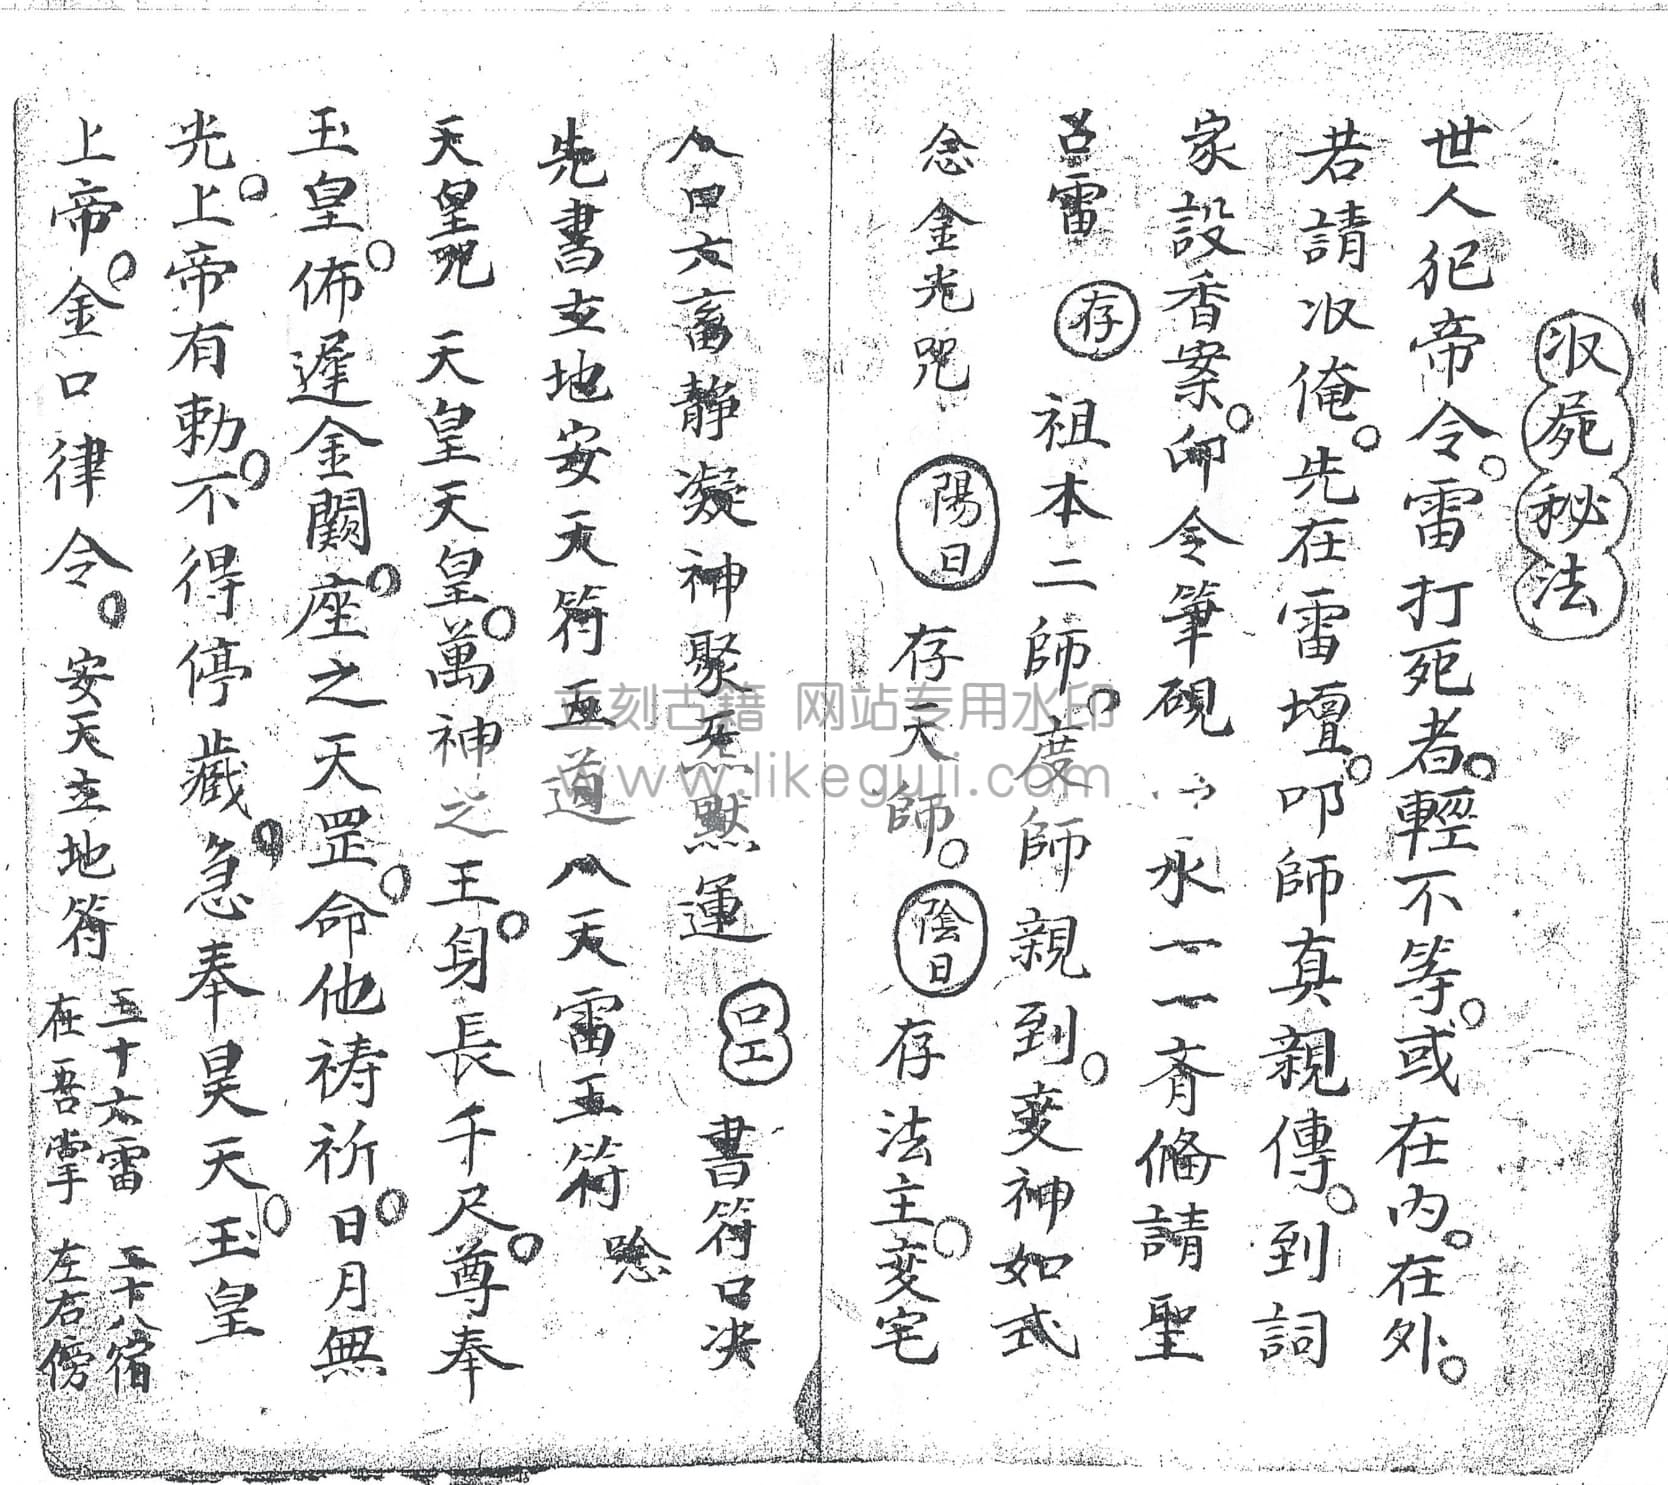 収屍秘法
世人犯帝令。雷打死者。輕不等。或在內。在外。
若請収俺。先在雷壇。叩師真親傳。到詞
家設香案。印令筆硯 水一一齊俻請聖
召雷 存 祖本二師。度師親到。变神如式
念金光咒 陽日 存天師。陰日 存法主。变宅
人口六畜靜凝神聚炁默運 書符口决
先書立地安天符五道八天雷王符 唸
天皇咒 天皇天皇。萬神之王。身長千尺。尊奉
玉皇。佈遲金闕。座之天罡。命他祷祈。日月無
光。上帝有勅。不得停藏。急奉昊天。玉皇
上帝。金口律令。安天立地符 三十六雷 二十八宿
在吾掌 左右傍
立刻古籍 网站专用水印
www.likeguji.com